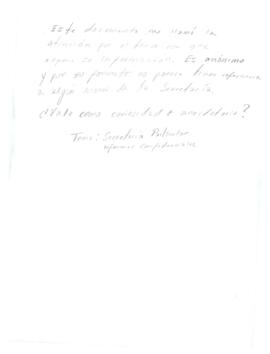 Este documento me llamó la
atención por el tono con que
expone su información. Es anónimo
y por su formato no parece tener referencia
a algún
de la Secretaría.
¿Vale como curiosidad o anecdotario?
Tema: Secretaría Particular
informes confidenciales